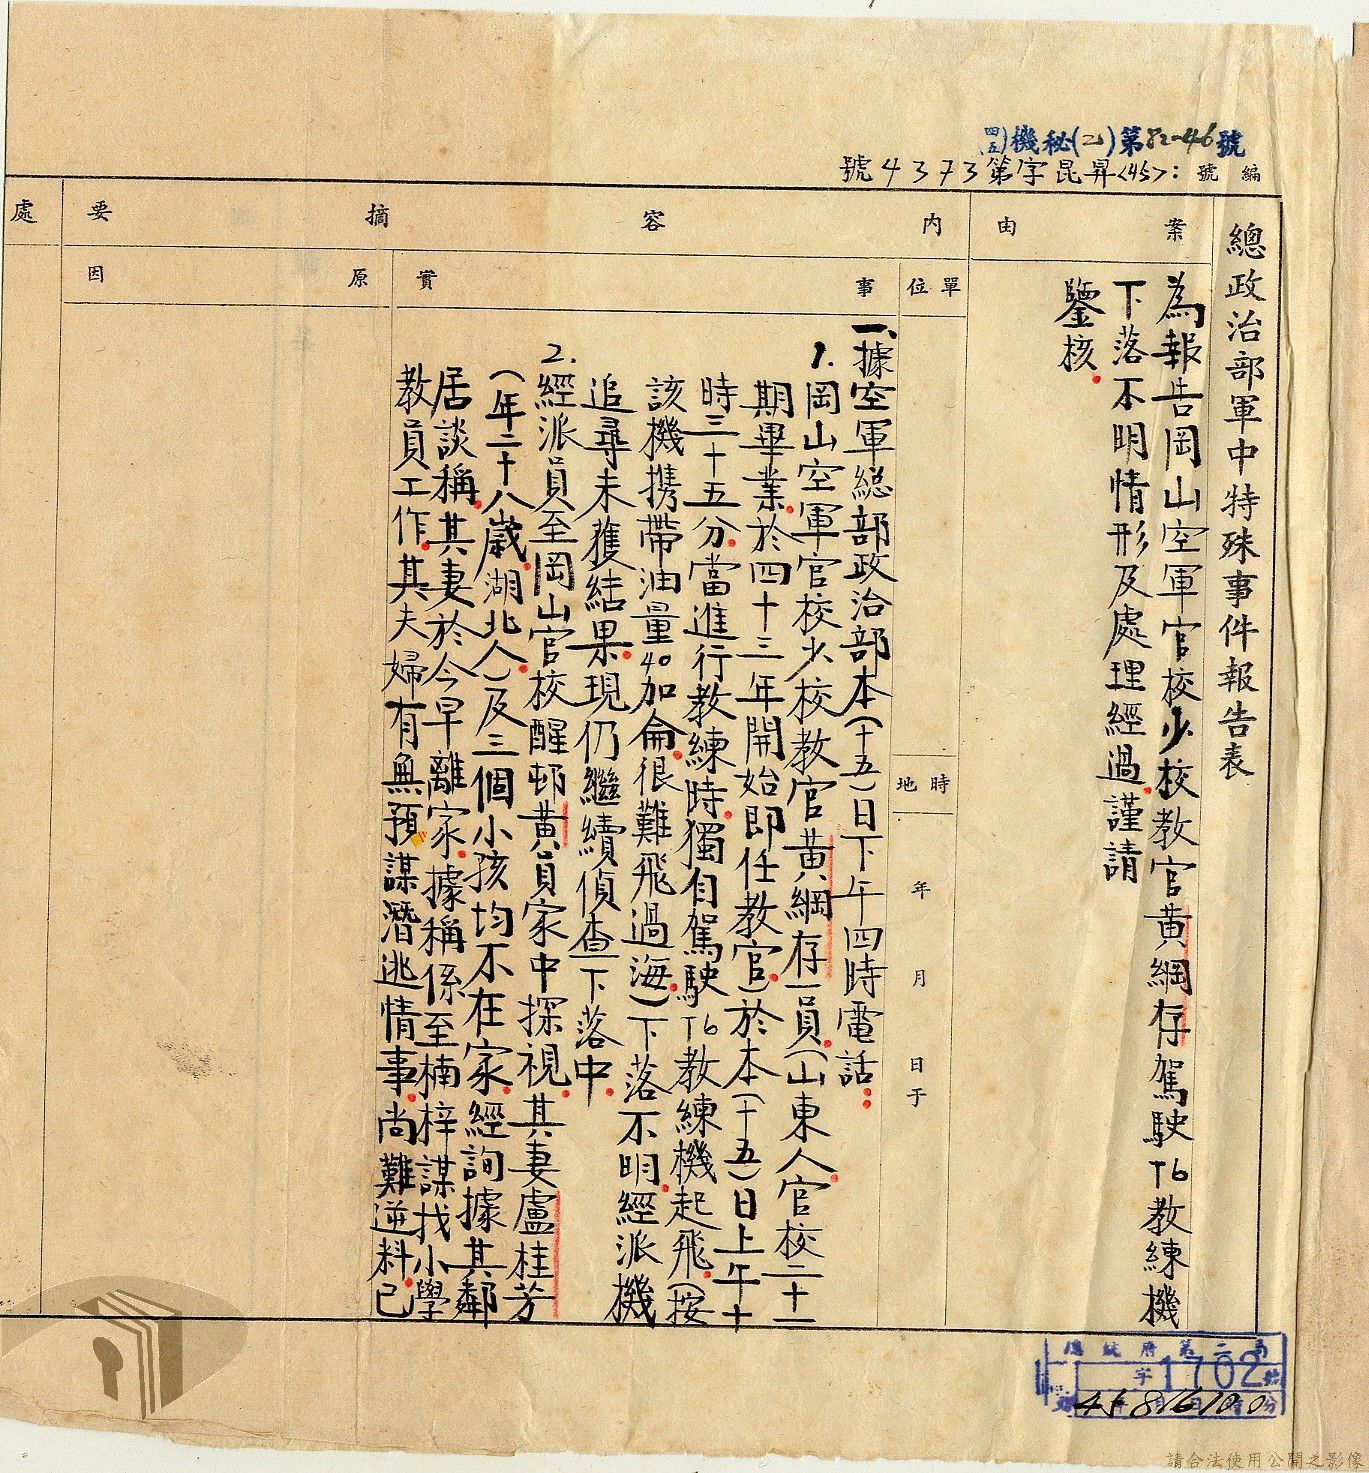 (四五)機秘(乙)第82-46號
編號：<45>昇昆字第4373號
總政治部軍中特殊事件報告表
案由
為報告岡山空軍官校少校教官黃綱存駕駛T6教練機
下落不明情形及處理經過謹請
鑒核.
內容摘要
單位
時地
年月日于
事實
一、據空軍総部政治部本(十五)日下午四時電話：
1.岡山空軍官校少校教官黃綱存一員.(山東人.官校二十一
期畢業.於四十三年開始即任教官.)於本(十五)日上午十
時三十五分.當進行教練時.獨自駕駛T6教練機起飛.(按
該機携帶油量40加侖.很難飛過海.)下落不明.經派機
追尋未獲結果.現仍繼續偵查下落中.
2.經派員至岡山官校醒邨黃員家中探視.其妻盧桂芳
(年二十八歲.湖北人.)及三個小孩均不在家.經詢據其鄰
居談稱.其妻於今早離家.據稱係至楠梓謀找小學
教員工作.其夫婦有無預謀潛逃情事.尚難逆料.已
原因
處
總統府第二局
字1702號
45年8月16日10時0分
請合法使用公開之影像